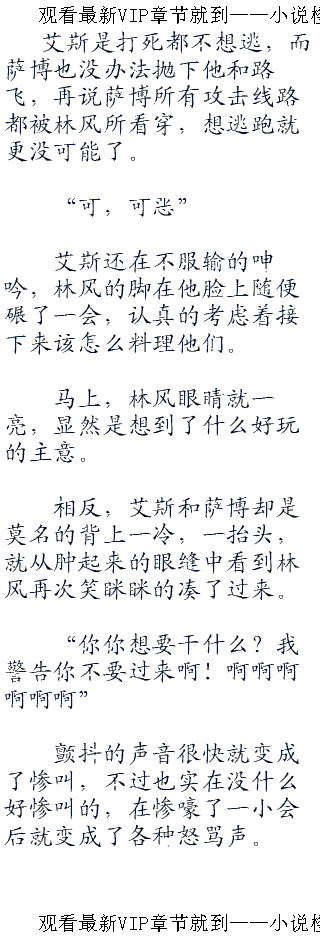 观看最新VIP章节就到——小说
艾斯是打死都不想逃，而
萨博也没办法抛下他和路
飞，再说萨博所有攻击线路
都被林风所看穿，想逃跑就
更没可能了。
“可，可恶”
艾斯还在不服输的呻
吟，林风的脚在他脸上随便
碾了一会，认真的考虑着接
下来该怎么料理他们。
马上，林风眼睛就一
亮，显然是想到了什么好玩
的主意。
相反，艾斯和萨博却是
莫名的背上一冷，一抬头，
就从肿起来的眼缝中看到林
风再次笑眯眯的凑了过来。
“你你想要干什么？我
警告你不要过来啊！啊啊啊
啊啊啊”
颤抖的声音很快就变成
了惨叫，不过也实在没什么
好惨叫的，在惨嚎了一小会
后就变成了各种怒骂声。
观看最新VIP章节就到——小说